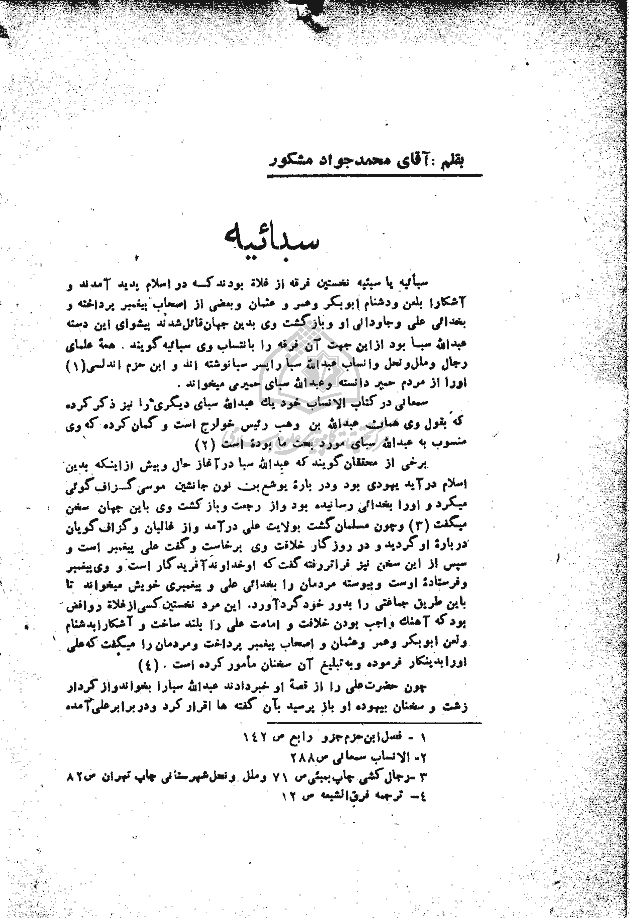 بقلم : آقای محمدجواد مشکور
سبائیه
سبأئیه یا سبئیه نخستین فرقه از غلاة بودند که در اسلام پدید آمدند و
آشکارا بلعن ودشنام ابوبکر وعمر و عثمان وبعضی از اصحاب پیغمبر پرداخته و
بخدائی علی وجاودانی او وبازگشت وی بدین جهان قائل شدند پیشوای این دسته
عبدالله سبا بود ازاین جهت آن فرقه را بانتساب وی سبائیه گویند . همهٔ علمای
رجال وملل ونحل وانساب عبدالله سبا راپسر سبا نوشته اند و ابن حزم اندلسی(۱)
اورا از مردم حمیر دانسته وعبدالله سبای حمیری میخواند .
سمعانی در کتاب الانساب خود یك عبدالله سبای دیگری را نیز ذکر کرده
که بقول وی همان عبدالله بن وهب رئیس خوارج است و گمان کرده که وی
منسوب به عبدالله سبای مورد بحث ما بوده است (۲)
برخی از محققان گویند که عبدالله سبا در آغاز حال وپیش ازاینکه بدین
اسلام درآید یهودی بود ودر بارهٔ یوشع بن نون جانشین موسی گزاف گوئی
میکرد و اورا بخدائی رسانیده بود واز رجعت وبازگشت وی باین جهان سخن
میگفت (۳) وچون مسلمان گشت بولایت علی درآمد واز غالیان و گزاف گویان
دربارهٔ او گردید و در روزگار خلافت وی برخاست وگفت علی پیغمبر است و
سپس از این سخن نیز فراتر رفته گفت که اوخداوند آفریدگار است و وی پیغمبر
وفرستادهٔ اوست وپیوسته مردمان را بخدائی علی و پیغمبری خویش میخواند تا
باین طریق جماعتی را بدور خود گردآورد. این مرد نخستین کسی از غلاة روافض
بود که آهنك واجب بودن خلافت و امامت علی را بلند ساخت و آشکارا بدشنام
ولعن ابوبکر وعمر وعثمان و اصحاب پیغمبر پرداخت ومردمان را میگفت که علی
اورا بدینکار فرموده وبه تبلیغ آن سخنان مأمور کرده است . (٤)
چون حضرت علی را از قصهٔ او خبر دادند عبدالله سبارا بخواند واز کردار
زشت و سخنان بیهوده او باز پرسید بآن گفته ها اقرار کرد ودر برابر علی آمده
۱ - فصل ابن حزم جزو رابع ص ۱٤۲
۲- الانساب سمعانی ص ۲۸۸
۳ -رجال کشی چاپ بمبئی ص ۷۱ وملل ونحل شهرستانی چاپ تهران ص ۸۲
٤- ترجمه فرق الشیعه ص ۱۲